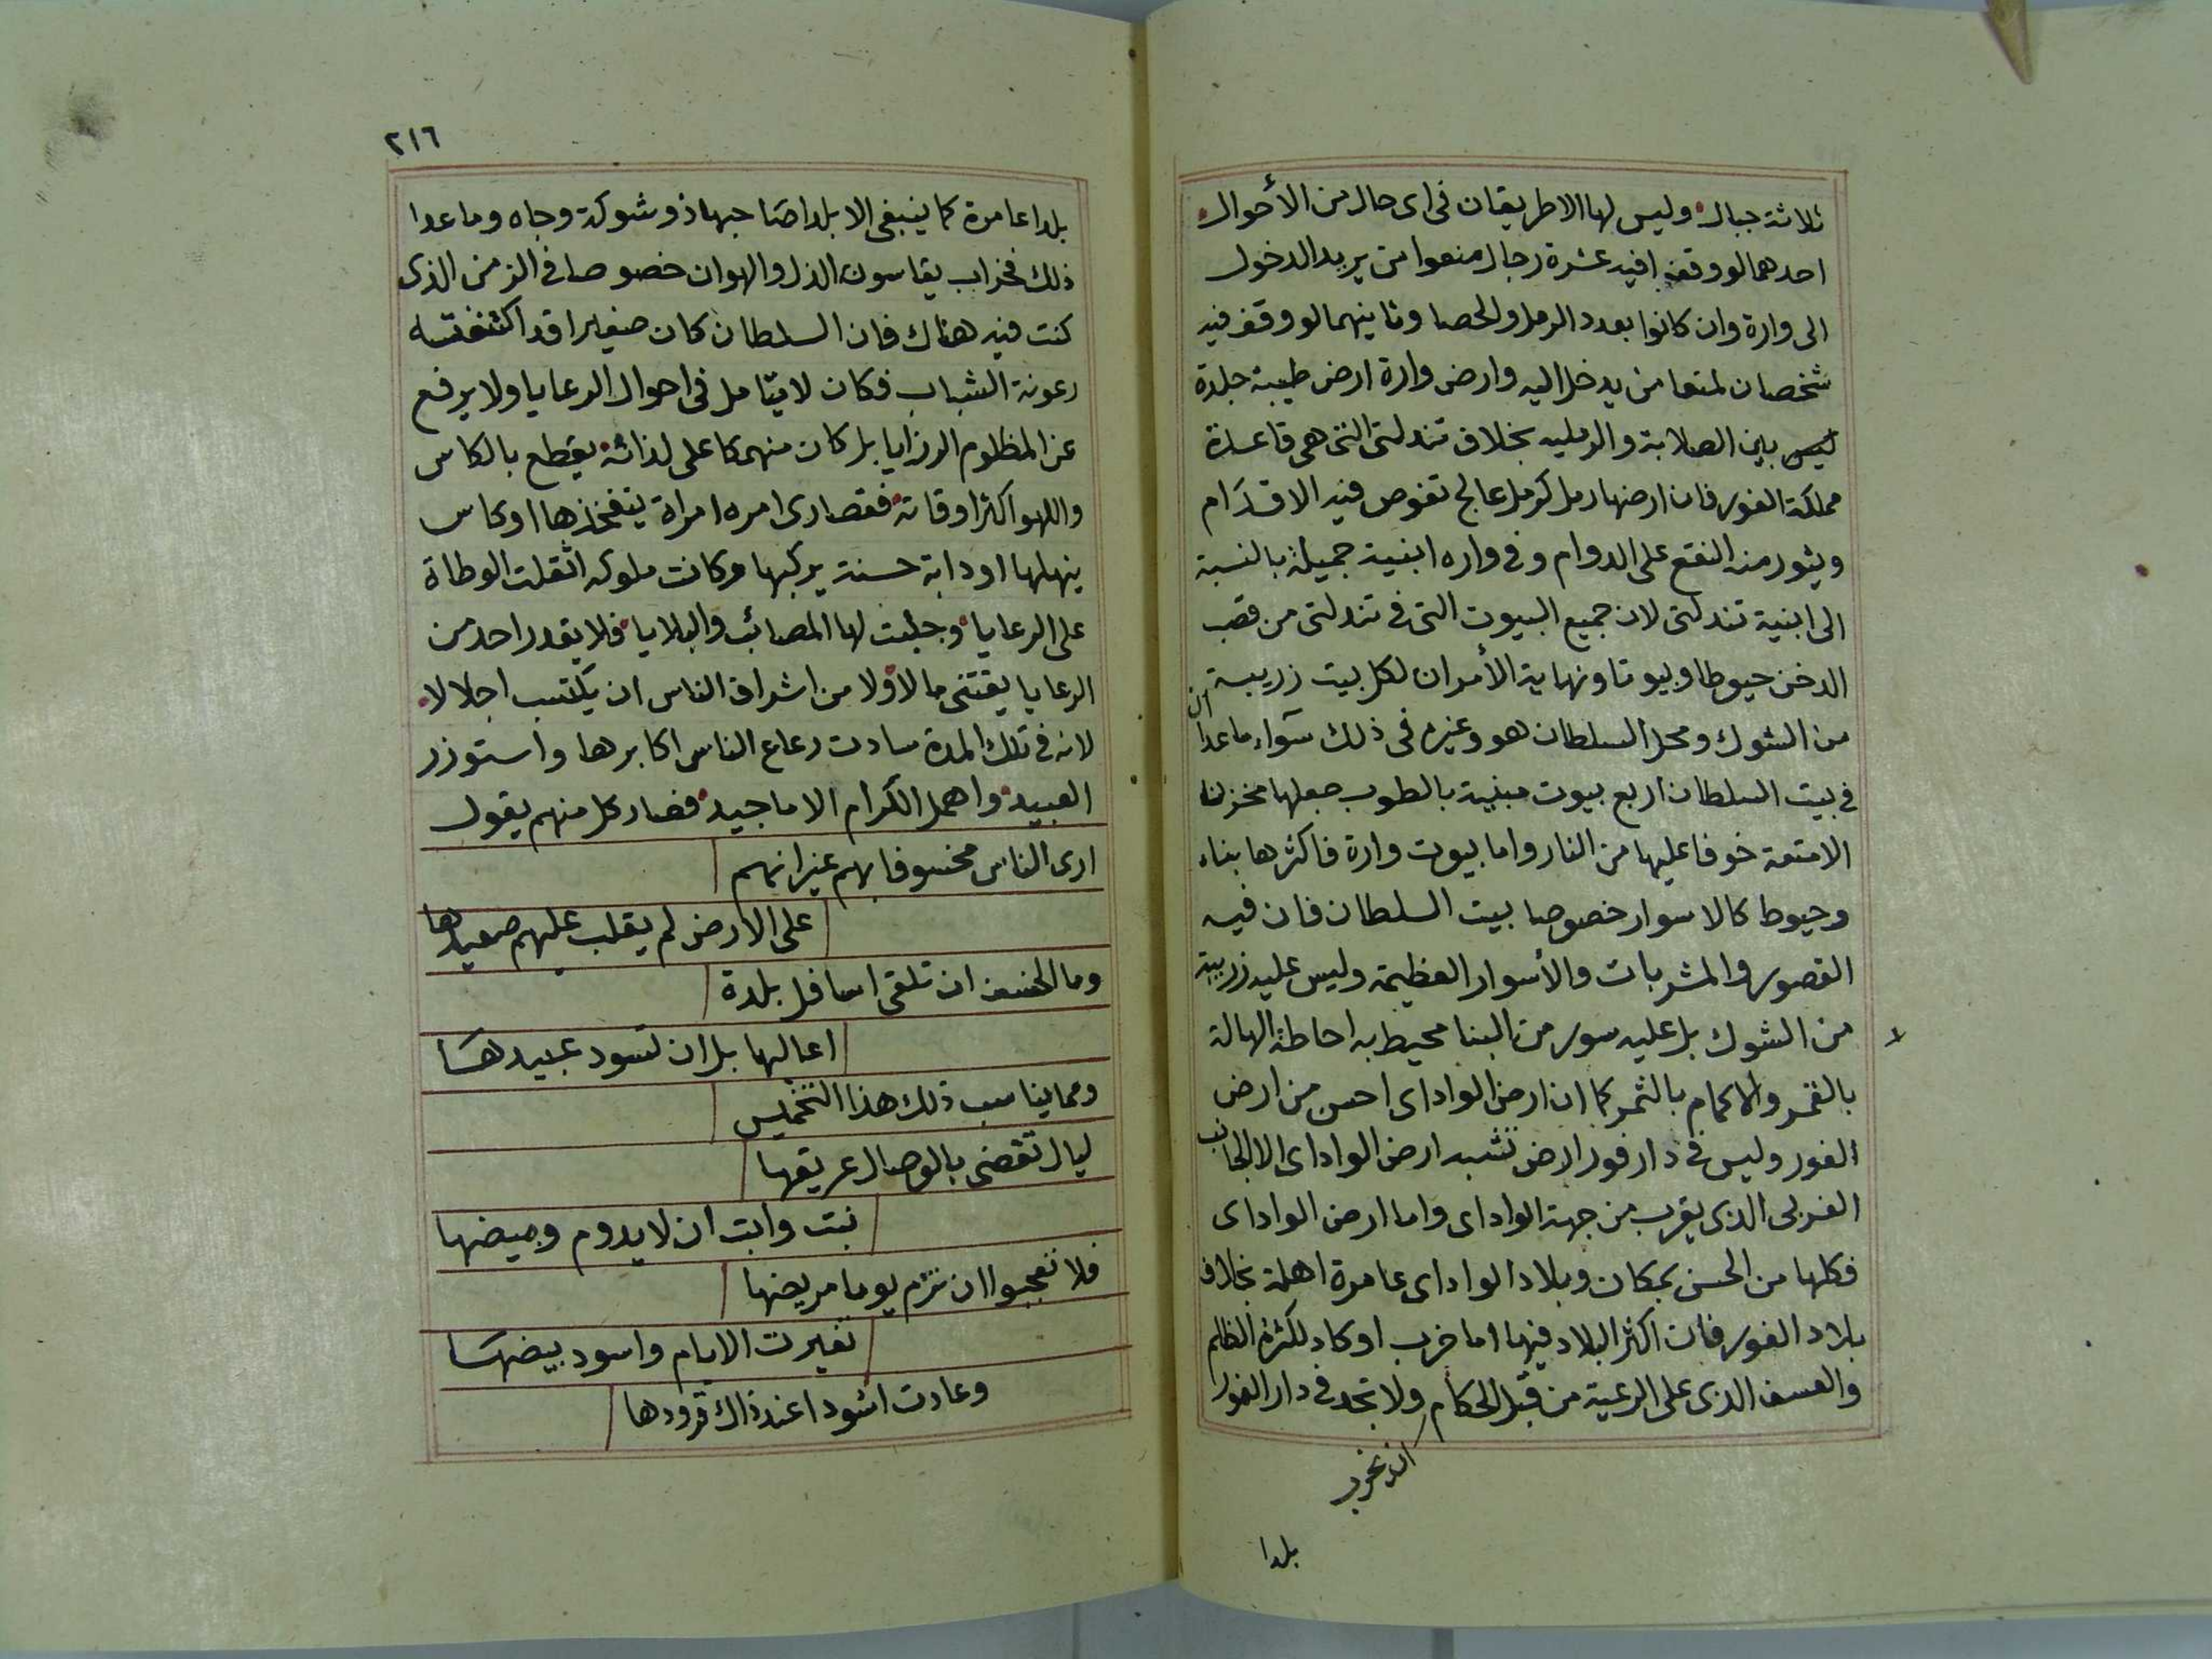 ثلاثة جبال وليس لها الا طريقان فى اى حال من الأحوال
احدهما لو وقف فيه عشرة رجال منعوا من يريد الدخول
الى وارة وان كانوا بعدد الرمل والحصا وثاينهما لو وقف فيه
شخصان لمنعا من يدخل اليه وارض وارة ارض طيبة جلدة
ليس بين الصلابة والرمليه بخلاف تندلتى التى هى قاعدة
مملكة الفور فان ارضها رمل كرمل عالج تغوص فيه الاقدام
ويثور منه النقع على الدوام وفى واره ابنية جميلة بالنسبة
الى ابنية تندلتى لان جميع البيوت التى فى تندلتى من قصب
الدخن حيوطا وبيوتا ونهاية الأمر ان لكل بيت زريبة
من الشوك ومحل السلطان هو وغيره فى ذلك سواء ما عدا ان
فى بيت السلطان اربع بيوت مبنية بالطوب جعلها مخزن
الامتعة خوفا عليها من النار واما بيوت وارة فاكثرها بناء
وحيوط كالاسوار خصوصا بيت السلطان فان فيه
القصور والمشربات والأسوار العظيمة وليس عليه زريبة
من الشوك بل عليه سور من البنا محيط به احاطة الهالة
بالقمر والاكمام بالثمر كما ان ارض الواداى احسن من ارض
الفور وليس فى دارفور ارض تشبه ارض الواداى الا الجانب
الغربى الذى يقرب من جهة الواداى واما ارض الواداى
فكلها من الحسن بمكان وبلاد الواداى عامرة اهلة بخلاف
بلاد الفور فان اكثر البلاد فيها اما خرب او كاد لكثرة الظلم
والعسف الذى على الرعية من قبل الحكام ولا تجد فى دار الفور
بلدا
٢١٦
بلدا عامرة كما ينبغى الا بلدا صاحبها ذو شوكة وجاه وما عدا
ذلك فخراب يقاسون الذل والهوان خصوصا فى الزمن الذى
كنت فيه هناك فان السلطان كان صغيرا قد اكتنفته
رعونة الشباب فكان لا يتامل فى احوال الرعايا ولا يرفع
عن المظلوم الرزايا بل كان منهمكا على لذاته يقطع بالكاس
واللهو اكثر اوقاته فقصارى امره امراة يتفخذها او كاس
ينهلها او دابة حسنة يركبها وكانت ملوكه اثقلت الوطاة
على الرعايا وجلبت لها المصائب والبلايا فلا يقدر احد من
الرعايا يقتنى مالا ولا من اشراف الناس ان يكتسب اجلالا
لانه فى تلك المدة سادت رعاع الناس اكابرها واستوزر
العبيد واهمل الكرام الاماجيد فصار كل منهم يقول
ارى الناس مخسوفا بهم غير انهم
على الارض لم يقلب عليهم صعيدها
وما الخسف ان تلقى اسافل بلدة
اعاليها بل ان تسود عبيدها
ومما يناسب ذلك هذا التخميس
ليال تقضى بالوصال عريقها
نبت وابت ان لا يدوم وميضها
فلا تعجبوا ان نرم يوما مريضها
تغيرت الايام واسود بيضها
وعادت اسودا عند ذاك قرودها